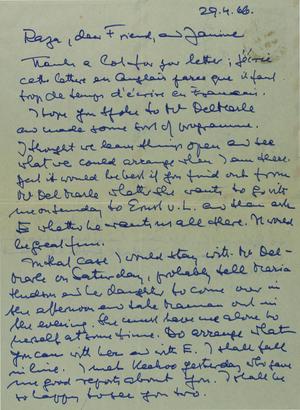 29.4.66.
Raza, dear Friend, and Janine
Thanks a lot for your letter; j'écris
cette lettre en Anglais parce que il faut
trop de temps d'écrire en Français.
I hope you spoke to Mr
and made some sort of programme.
I thought we leave things open and see
what we could arrange when I am there.
I would be best if you find out from
whether she wants to go with
me on Sunday to Ernst v. L. and then ask
E whether he wants us all there. It would
be great fun.
In that case I would stay with
on Saturday, probably tell Maria
and her daughter to come over in
the afternoon and take maman out in
the evening. She must have me alone to
herself at some time. Do arrange what
you can with her and with E. I shall fall
in line. I met yesterday who gave
me good reports about you. I shall be
so happy to see you two.